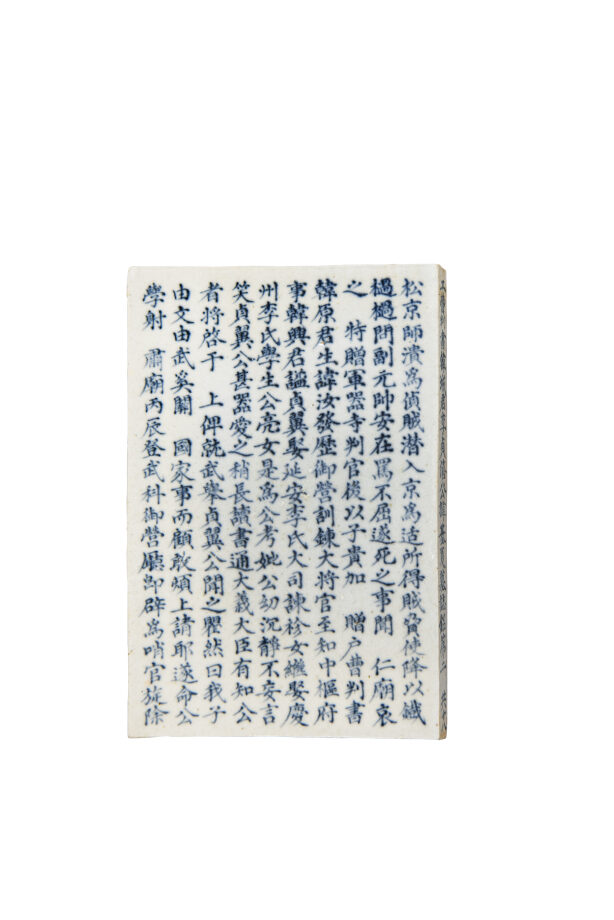 松京師潰爲偵賊潜入京爲适所得賊脅使降以鐵
檛檛問副元帥安在罵不屈遂死之事聞 仁廟哀
之 特贈軍器寺判官後以子貴加 贈戶曹判書
韓原君生諱汝發歷御營訓鍊大將官至知中樞府
事韓興君謚貞翼娶延安李氏大司諫袗女繼娶慶
州李氏學生公亮女是爲公考妣公幼沉靜不妄言
笑貞翼公甚器愛之稍長讀書通大義大臣有知公
者將啓于 上俾就武擧貞翼公聞之瞿然曰我子
由文由武奚關 國家事而顧敢煩上請耶遂命公
學射 肅廟丙辰登武科御營廳即辟爲哨官旋除